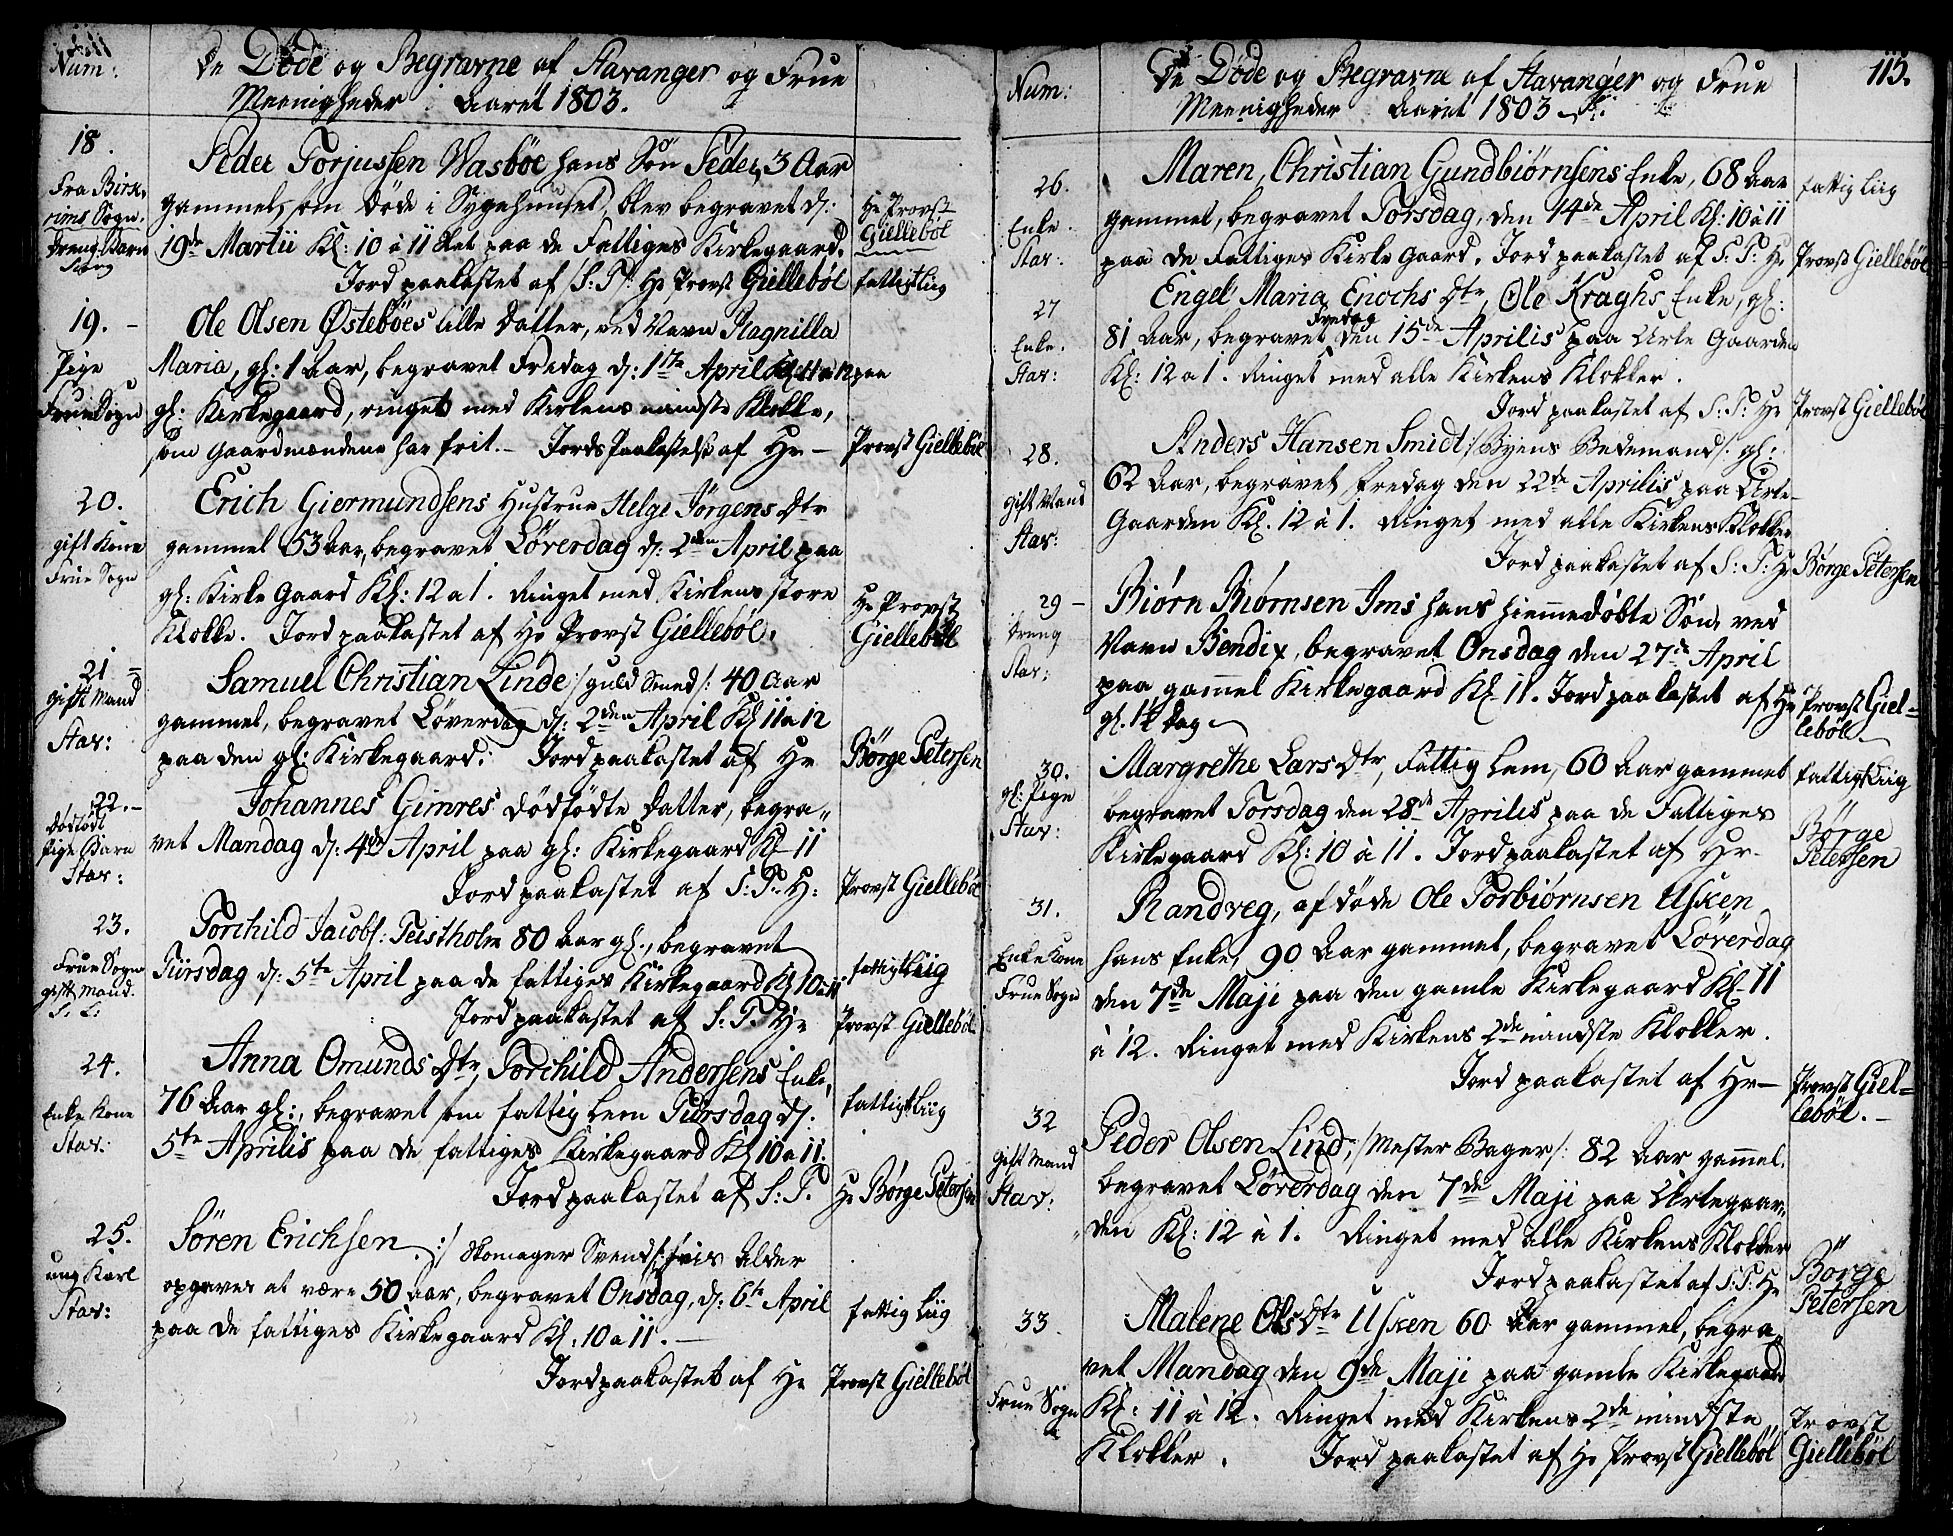 Num:
De Døde og Begravne af Stavanger og Frue
Meenigheder Aaret 1803.
18.
Fra Birk-
rims Sogn.
Dreng Barn
Peder Torjussen Wasböe hans Søn Peder, 3 Aar
gammel, som döde i Sygehuuset, blev begravet d:
19de Martii Kl: 10 à 11 Slet paa de Fattiges Kirkegaard.
Jord paakastet af S: T: Hr Provst Giellebøl
Hr Provst
Giellebøl
fattigt Liig
19. -
Pige
Frue Sogn
Ole Olsen Østebøes lille Datter, ved Navn Ragnilla
Maria, gl: 1 Aar, begravet Fredag d: 1te April Kl: 11 a 12 paa
gl: Kirkegaard, ringet med Kirkens mindste Klokke,
som Gaardmændene har frit. - Jords Paakastelse af Hr -
Provst Giellebøl
20.
gift Kone
Frue Sogn
Erich Giermundsens Hustrue Helge Jörgens Dtr
gammel 53 Aar, begravet Löverdag d: 2den April paa
gl: Kirke Gaard Kl: 12 a 1. Ringet med Kirkens store
Klokke. Jord paakastet af Hr Provst Giellebøl.
Hr Provst
Giellebøl
21 -
Gift Mand
Stav:
Samuel Christian Linde /: Guld Smed :/ 40 Aar
gammel, begravet Löverdag d: 2den April Kl 11 a 12
paa den gl: Kirkegaard. Jord paakastet af Hr
Börge Petersen
22. -
Dødfödt
Pige Barn
Stav:
Johannes Gimres Dödfödte Datter, begra-
vet Mandag d: 4de April paa gl: Kirkegaard Kl 11
Jord paakastet af S: T: H:
Provst Giellebøl
23.
Frue Sogn
gift Mand.
Torchild Jacobs: Teistholm 80 Aar gl., begravet
Tiirsdag d: 5te April paa de fattiges Kirkegaard Kl 10 a 11
Jord paakastet af S: T: Hr
fattigt Liig
Provst Giellebøl
24.
Enke Kone
Stav:
Anna Omunds Dtr, Torchild Andersens Enke,
76 Aar gl:, begravet som fattig Lem Tiirsdag d:
5te Aprilis paa de fattiges Kirkegaard Kl 10 a 11.
Jord paakastet af S: T.
fattigt Liig
Hr Börge Petersen
25.
ung Karl
Stav:
Sören Erichsen /: Skomager Svend :/ hvis Alder
opgaves at være 50 Aar, begravet Onsdag, d: 6te April
paa de fattiges Kirkegaard Kl: 10 a 11. -
Jord paakastet af Hr
fattig Liig
Provst Giellebøl
Num:
De Döde og Begravne af Stavanger og Frue
Meenigheder Aaret 1803
115.
26.
Enke.
Stav:
Maren, Christian Gundbiørnsens Enke, 68 Aar
gammel, begravet Torsdag, den 14de April Kl: 10 à 11
paa de Fattiges Kirke Gaard. Jord paakastet af S: T: Hr
fattig Liig
Provst Giellebøl
27
Enke.
Stav:
Engel Maria Enochs Dtr, Ole Kraghs Enke, gl:
81 Aar, begravet Fredag den 15de Aprilis paa Urte Gaarden
Kl: 12 a 1. Ringet med alle Kirkens Klokker.
Jord paakastet af S: T: Hr
Provst Giellebøl
28.
gift Mand
Stav:
Anders Hansen Smidt /: Byens Bedemand :/ gl:
62 Aar, begravet Fredag den 22de Aprilis paa Urte-
Gaarden Kl. 12 à 1. Ringet med alle Kirkens Klokker
Jord paakastet af S: T: Hr
Börge Petersen
29 -
Dreng
Stav:
Biørn Biørnsen Ims hans hiemmedøbte Søn, ved
Navn Bendix, begravet Onsdag den 27de April
paa gammel Kirkegaard Kl 11. Jord paakastet af Hr
gl. 14 Dag
Provst Giel-
lebøl
30.
gl: Pige
Stav:
Margrethe Lars Dtr, Fattig Lem, 60 Aar gammel
begravet Torsdag den 28de Aprilis paa de Fattiges
Kirkegaard Kl: 10 à 11. Jord paakastet af Hr.
fattigt Liig
Börge
Petersen
31.
Enke Kone
Frue Sogn
Randveg, afdöde Ole Torbiørnsen Usken
hans Enke, 90 Aar gammel, begravet Löverdag
den 7de Maji paa den gamle Kirkegaard Kl 11
à 12. Ringet med Kirkens 2de mindste Klokker.
Jord paakastet af Hr -
Provst Giel-
lebøl. -
32
Gift Mand
Stav:
Peder Olsen Lind, /: Mester Bager :/ 82 Aar gammel.
begravet Löverdag den 7de Maji paa Urtegaar-
den Kl: 12 à 1. Ringet med alle Kirkens Klokker
Jord paakastet af S: T: Hr
Börge
Petersen
33.
Frue Sogn
Malene Ols Dtr Usken 60 Aar gammel, begra-
vet Mandag den 9de Maji paa gamle Kirkegaard
Kl: 11 à 12. Ringet med Kirkens 2de mindste
Klokker. Jord paakastet af Hr Provst Giellebøl
Provst
Giellebøl